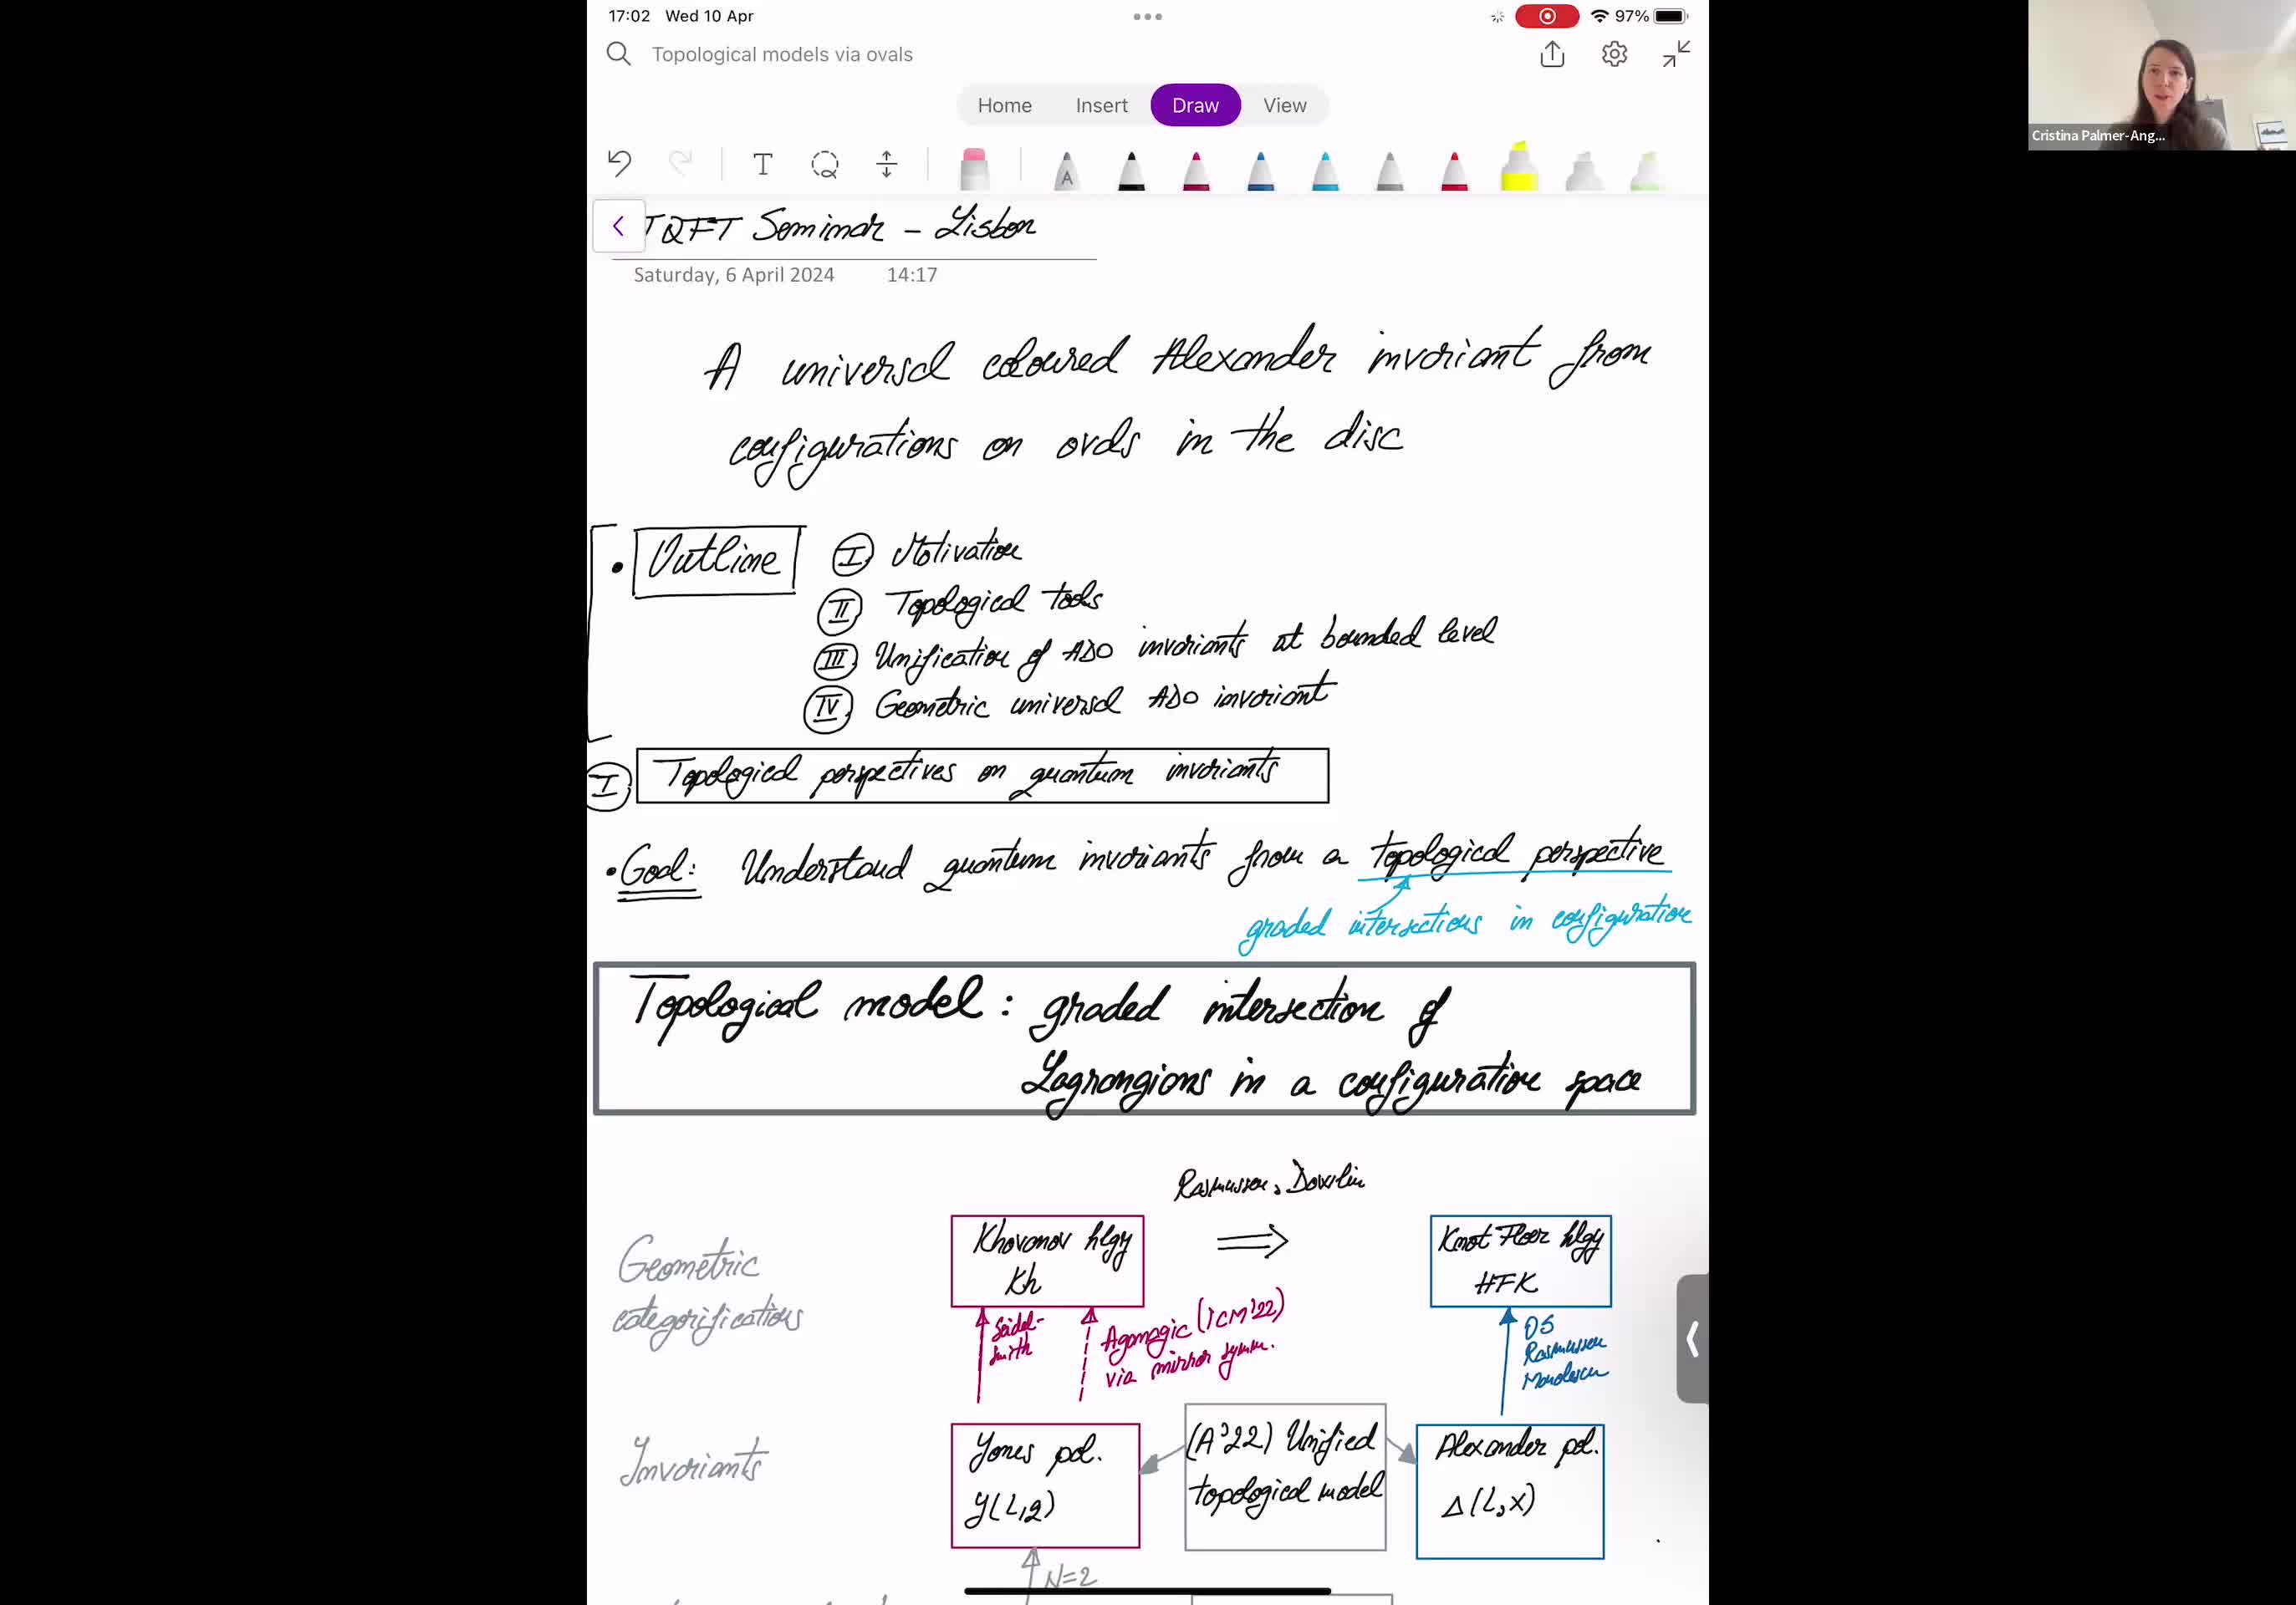 17:02 Wed 10 Apr
97%
Topological models via ovals
Home Insert Draw View
Cristina Palmer-Ang...
TQFT Seminar - Lisbon
Saturday, 6 April 2024 14:17
A universal coloured Alexander invariant from
configurations on ovals in the disc
• Outline I Motivation
II Topological tools
III Unification of ADO invariants at bounded level
IV Geometric universal ADO invariant
I Topological perspectives on quantum invariants
• Goal: Understand quantum invariants from a topological perspective
graded intersections in configuration
Topological model: graded intersection of
Lagrangians in a configuration space
Rasmussen, Dowlin
Geometric
categorifications
Khovanov hlgy
Kh
⇒
Knot Floer hlgy
HFK
Seidel-
Smith
Aganagic (ICM'22)
via mirror symm.
OS
Rasmussen
Manolescu
Invariants
Jones pol.
J(L,q)
(A'22) Unified
topological model
Alexander pol.
Δ(L,x)
N=2